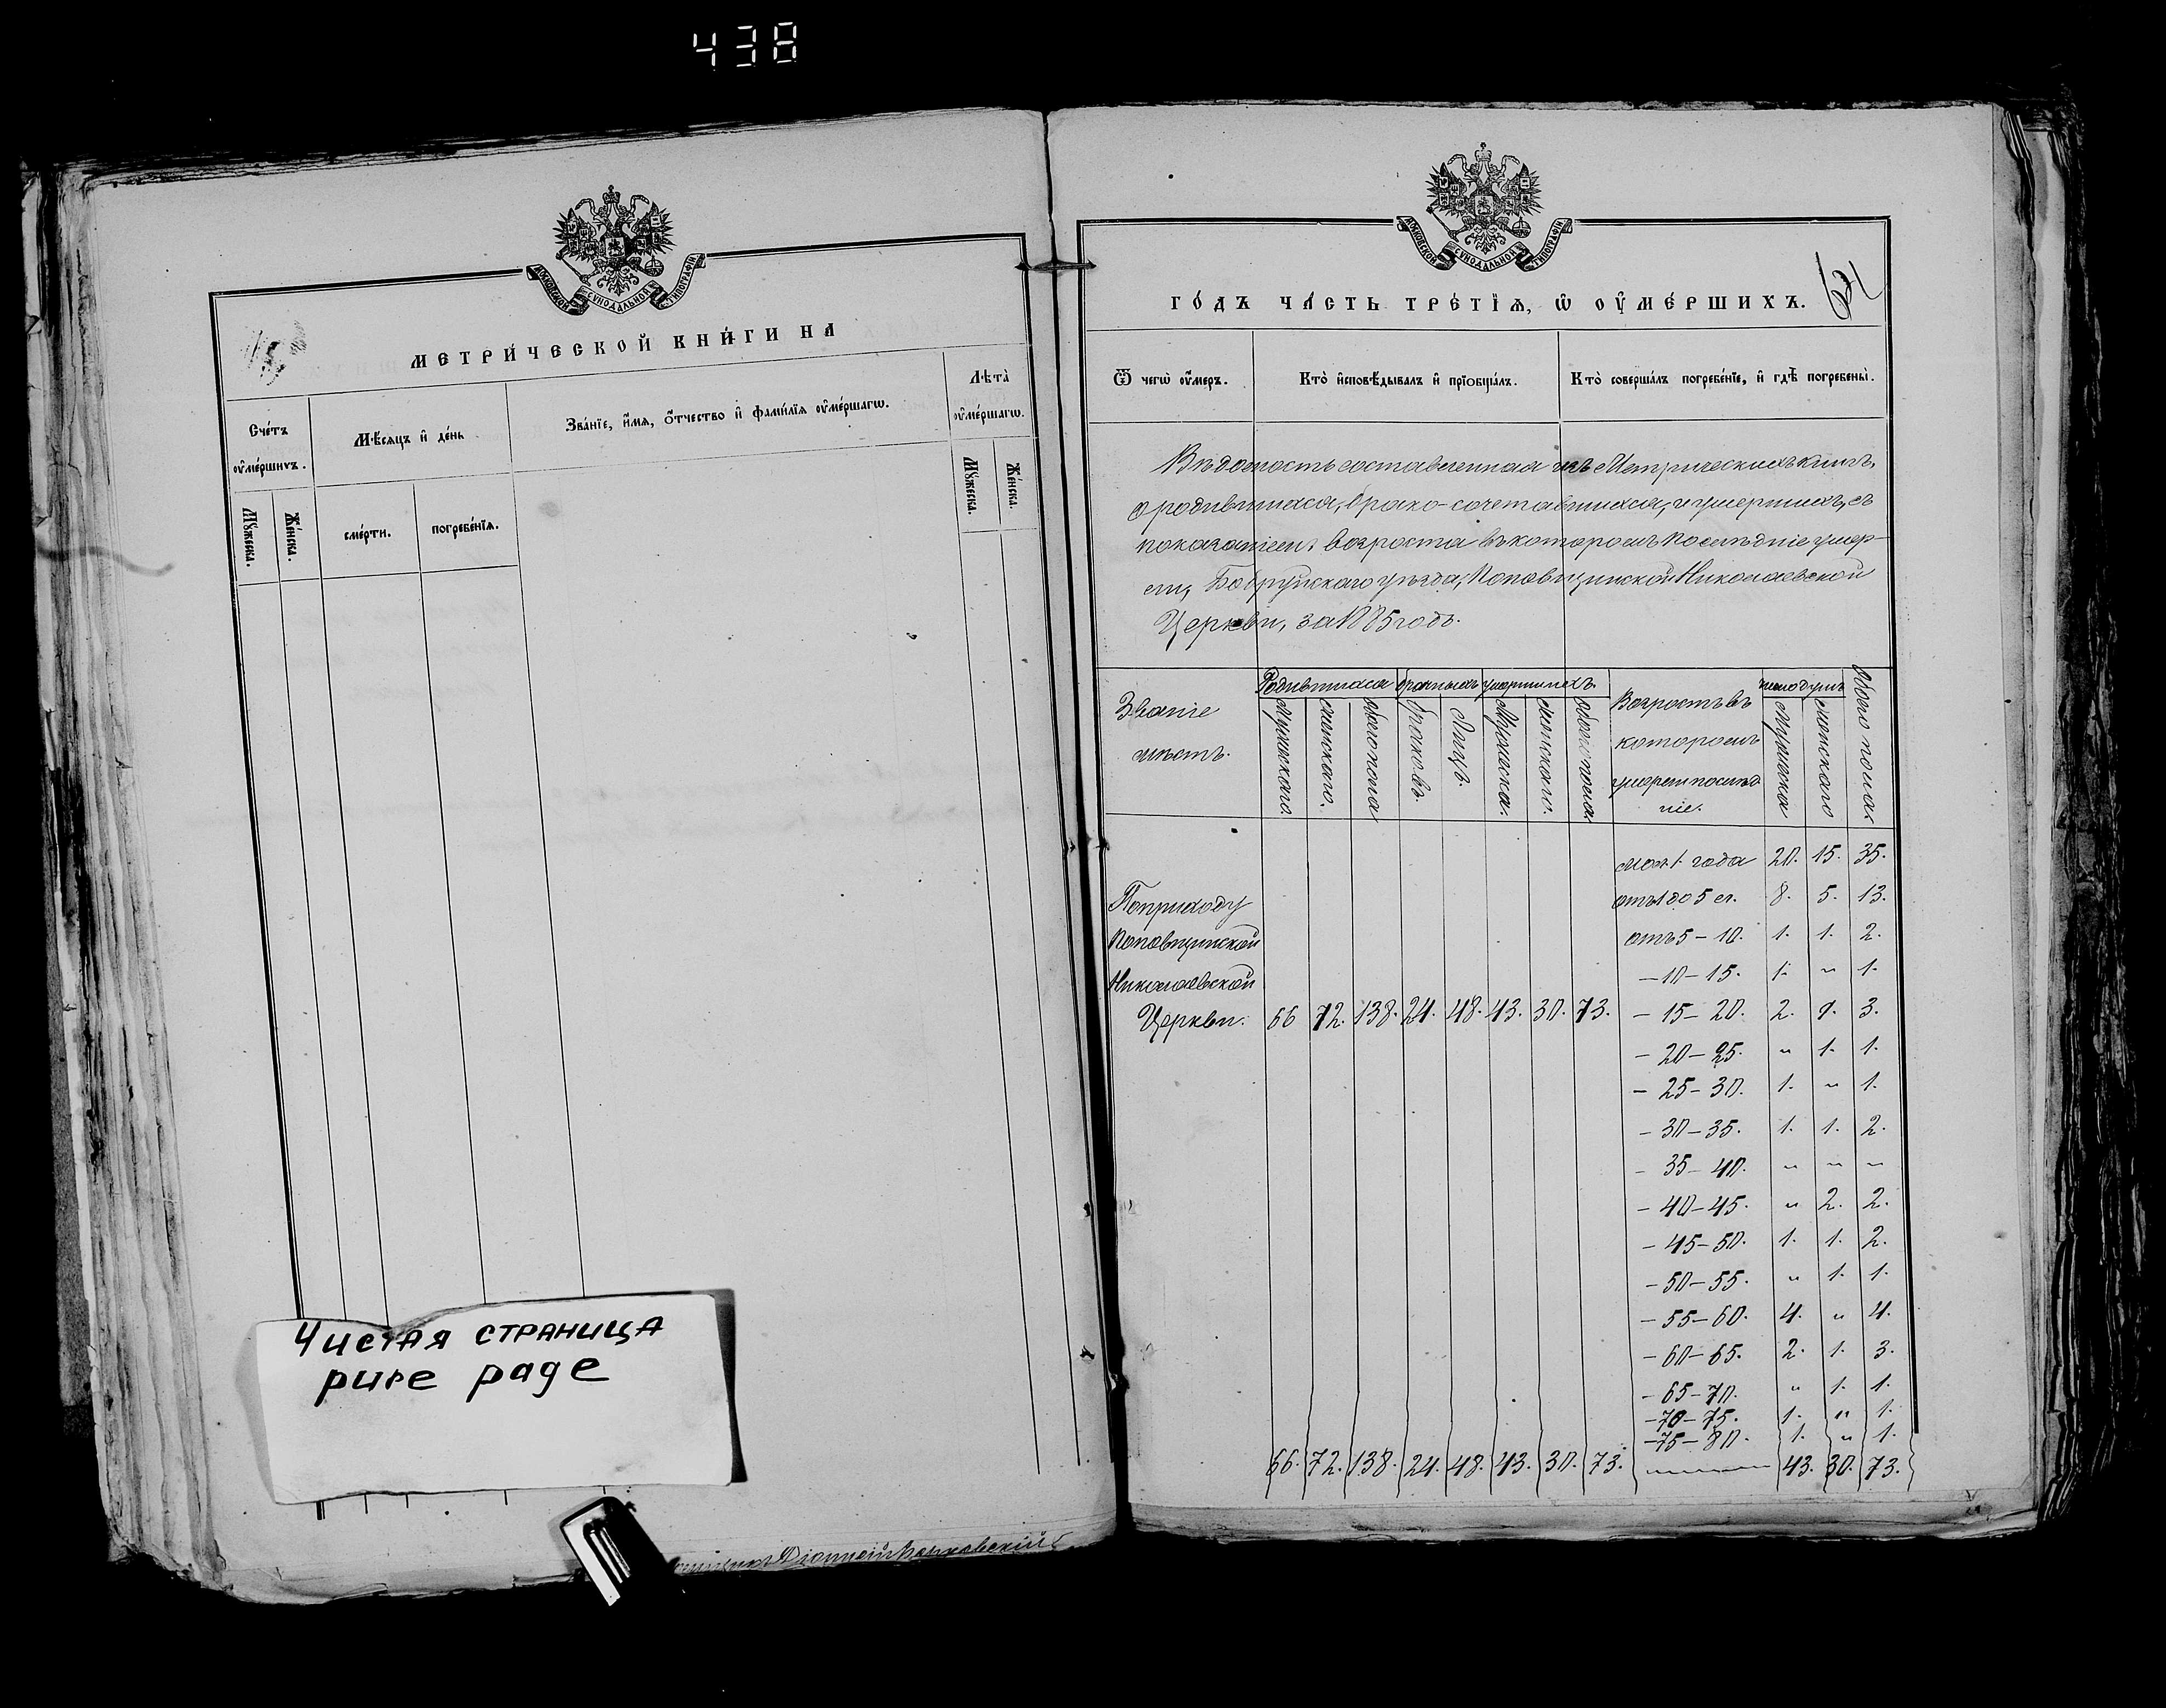 438
МОСКОВСКОЙ СѴНОДАЛЬНОЙ ТИПОГРАФІИ
МЕТРИ́ЧЕСКОЙ КНИ́ГИ НА
Сче́тъ оу҆ме́ршихъ.
Мꙋ́жеска.
Же́нска.
Мѣ́сяцъ и҆ де́нь
сме́рти.
погребе́нїѧ.
Зва́нїе, и҆́мѧ, ѻ҆́тчество и҆ фами́лїѧ оу҆ме́ршагѡ.
Лѣта̀
оу҆ме́ршагѡ.
Мꙋ́жеска.
Же́нска.
Чистая страница
pure page
МОСКОВСКОЙ СѴНОДАЛЬНОЙ ТИПОГРАФІИ
ГО́ДЪ ЧА́СТЬ ТРЕ́ТЇѦ, Ѡ҆ ОУ҆МЕ́РШИХЪ.
Ѿ чегѡ̀ оу҆́меръ.
Кто̀ и҆сповѣ́дывалъ и҆ прїобща́лъ.
Кто̀ соверша́лъ погребе́нїе, и҆ гдѣ̀ погребены̀.
Вѣдомость составленная изъ Метрическихъ книгъ,
о родившихся, брако-сочетавшихся, и умершихъ, съ
показаніемъ возраста въ которомъ послѣдніе умер-
ли, Бобруйскаго уѣзда, Поповщинской Николаевской
Церкви, за 1885 годъ.
Званіе
мѣстъ.
Родившихся бракныхъ умершихъ.
Мужскаго.
женскаго.
обоего пола
браковъ.
Лицъ.
Мужеска.
Женскаго.
обоего пола
Возрастъ въ
которомъ
умерли послѣд
ніе.
число душъ
Мужеска
женскаго
Обоего пола
мол. 1. года 20. 15. 35.
По приходу отъ 1 до 5 л. 8. 5. 13.
Поповщинской отъ 5 – 10. 1. 1. 2.
Николаевской – 10 – 15. 1. „ 1.
Церкви. 66 72. 138. 24. 48. 43. 30. 73. – 15 – 20. 2. 1. 3.
– 20 – 25. „ 1. 1.
– 25 – 30. 1. „ 1.
– 30 – 35. 1. 1. 2.
– 35 – 40. „ „ „
– 40 – 45. „ 2. 2.
– 45 – 50. 1. 1. 2.
– 50 – 55. „ 1. 1.
– 55 – 60. 4. „ 4.
– 60 – 65. 2. 1. 3.
– 65 – 70. „ 1. 1.
– 70 – 75. 1. „ 1.
– 75 – 80. 1. „ 1.
66. 72. 138. 24. 48. 43. 30. 73. 43. 30. 73.